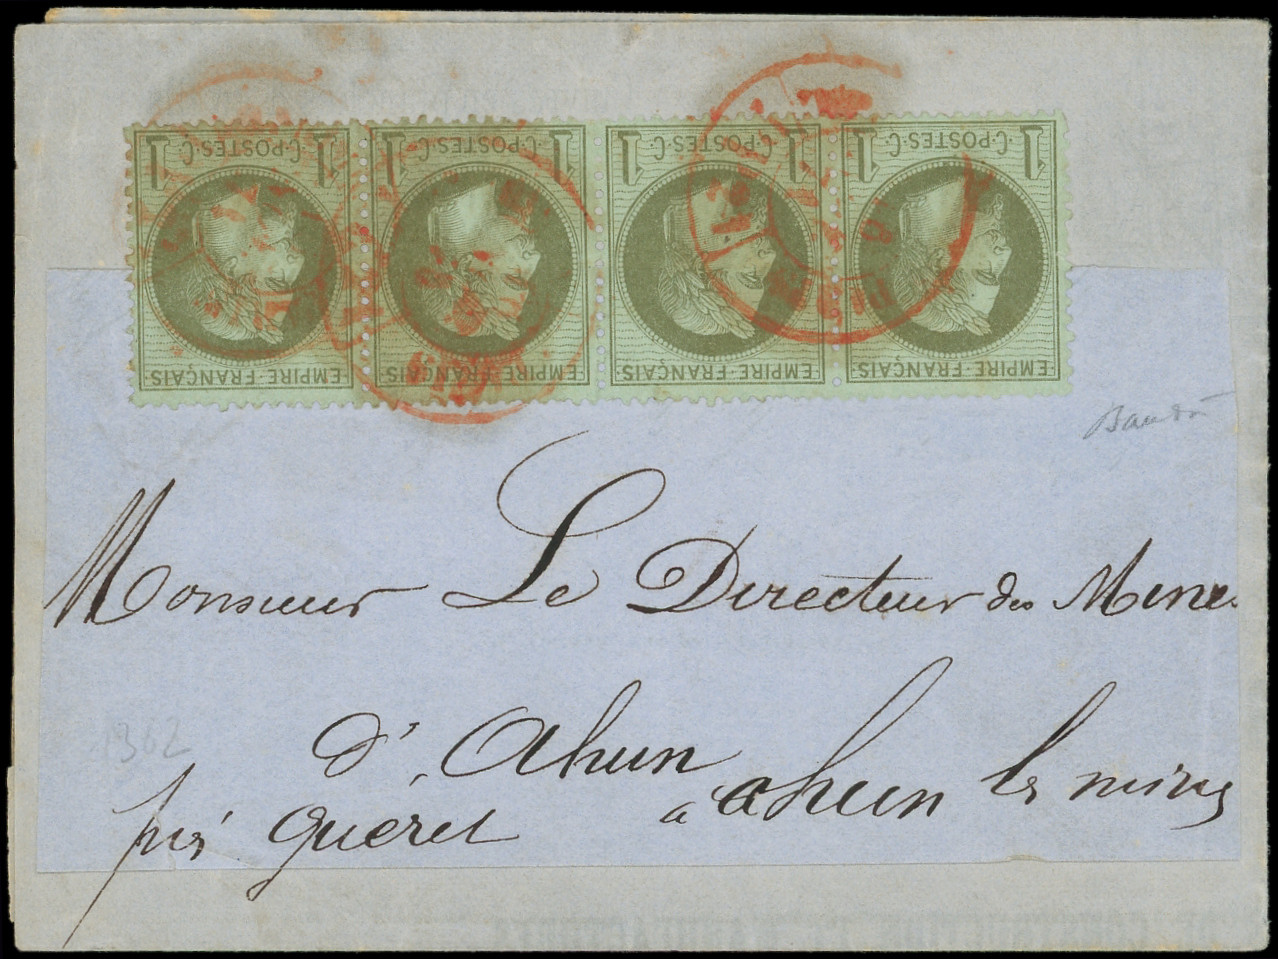 1 C·POSTES·C· 1 1 C·POSTES·C· 1 1 C·POSTES·C· 1 1 C·POSTES·C· 1
EMPIRE·FRANÇAIS EMPIRE·FRANÇAIS EMPIRE·FRANÇAIS EMPIRE·FRANÇAIS
Monsieur Le Directeur des Mines
d'Ahun
près Guéret à ahun les mines
1362